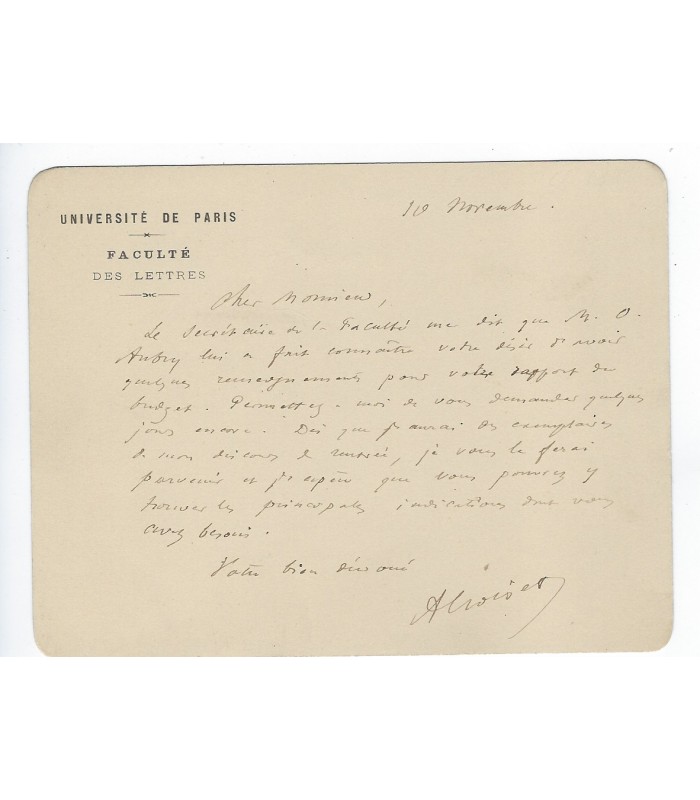 UNIVERSITÉ DE PARIS
FACULTÉ
DES LETTRES
10 Novembre.
Cher Monsieur,
Le Secrétaire de la Faculté me dit que M. O.
Aubry lui a fait connaître votre désir d'avoir
quelques renseignements pour votre rapport du
budget. Permettez-moi de vous demander quelques
jours encore. Dès que j'aurai des exemplaires
de mon discours de rentrée, je vous le ferai
parvenir et j'espère que vous pourrez y
trouver les principales indications dont vous
avez besoin.
Votre bien dévoué
A Croiset